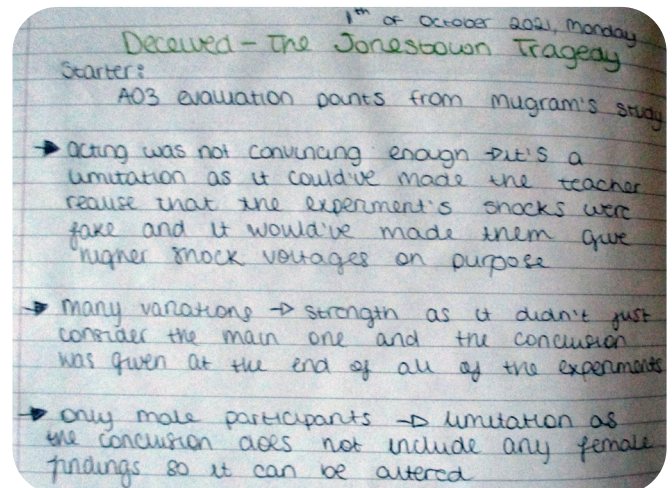 1th of October 2021, Monday
Deceived - The Jonestown Tragedy
Starter:
AO3 evaluation points from Milgram's study
→ acting was not convincing enough → it's a
limitation as it could've made the teacher
realise that the experiment's shocks were
fake and it would've made them give
higher shock voltages on purpose
→ many variations → strength as it didn't just
consider the main one and the conclusion
was given at the end of all of the experiments
→ only male participants → limitation as
the conclusion does not include any female
findings so it can be altered